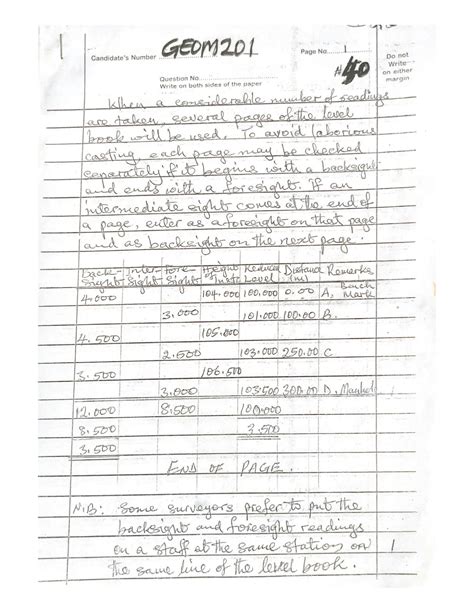 1
Candidate's Number GEOM201
Page No. 1
Do not
Write
on either
margin
Question No.
Write on both sides of the paper
#40
When a considerable number of readings
are taken, several pages of the level
book will be used. To avoid laborious
casting, each page may be checked
separately if it begins with a backsight
and ends with a foresight. If an
intermediate sight comes at the end of
a page, enter as a foresight on that page
and as backsight on the next page.
Back- Inter Fore- Height Reduced Distance Remarks
Sight Sight Sight Inst. Level (m)
4.000 104.000 100.000 0.00 A, Bench Mark
3.000 101.000 100.00 B.
4.500 105.000
2.500 103.000 250.00 C
3.500 106.500
3.000 103.500 300.00 D,
12.000 8.500 100.000
8.500 3.500
3.500
END OF PAGE.
N.B: Some surveyors prefer to put the
backsight and foresight readings
on a staff at the same station on
the same line of the level book.
1